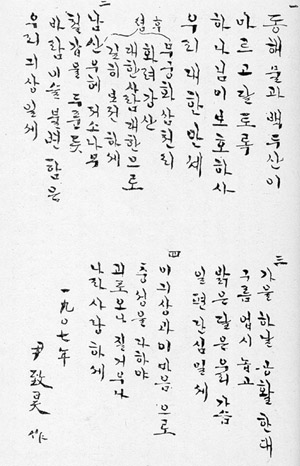 一
동해물과 백두산이
마르고 달토록
하나님이 보호하사
우리 대한만세
후렴
무궁화 삼천리
화려강산
대한사람 대한으로
길히 보전하세
二
남산우헤 저 소나무
철갑을 두른듯
바람이슬 불변함은
우리 긔상일세
三
가을하날 공활한대
구름업시 놉고
밝은달은 우리가슴
일편단심일세
四
이긔상과 이마음으로
충성을 다하야
괴로오나 질거우나
나라사랑하세
一九０七年
尹致昊 作